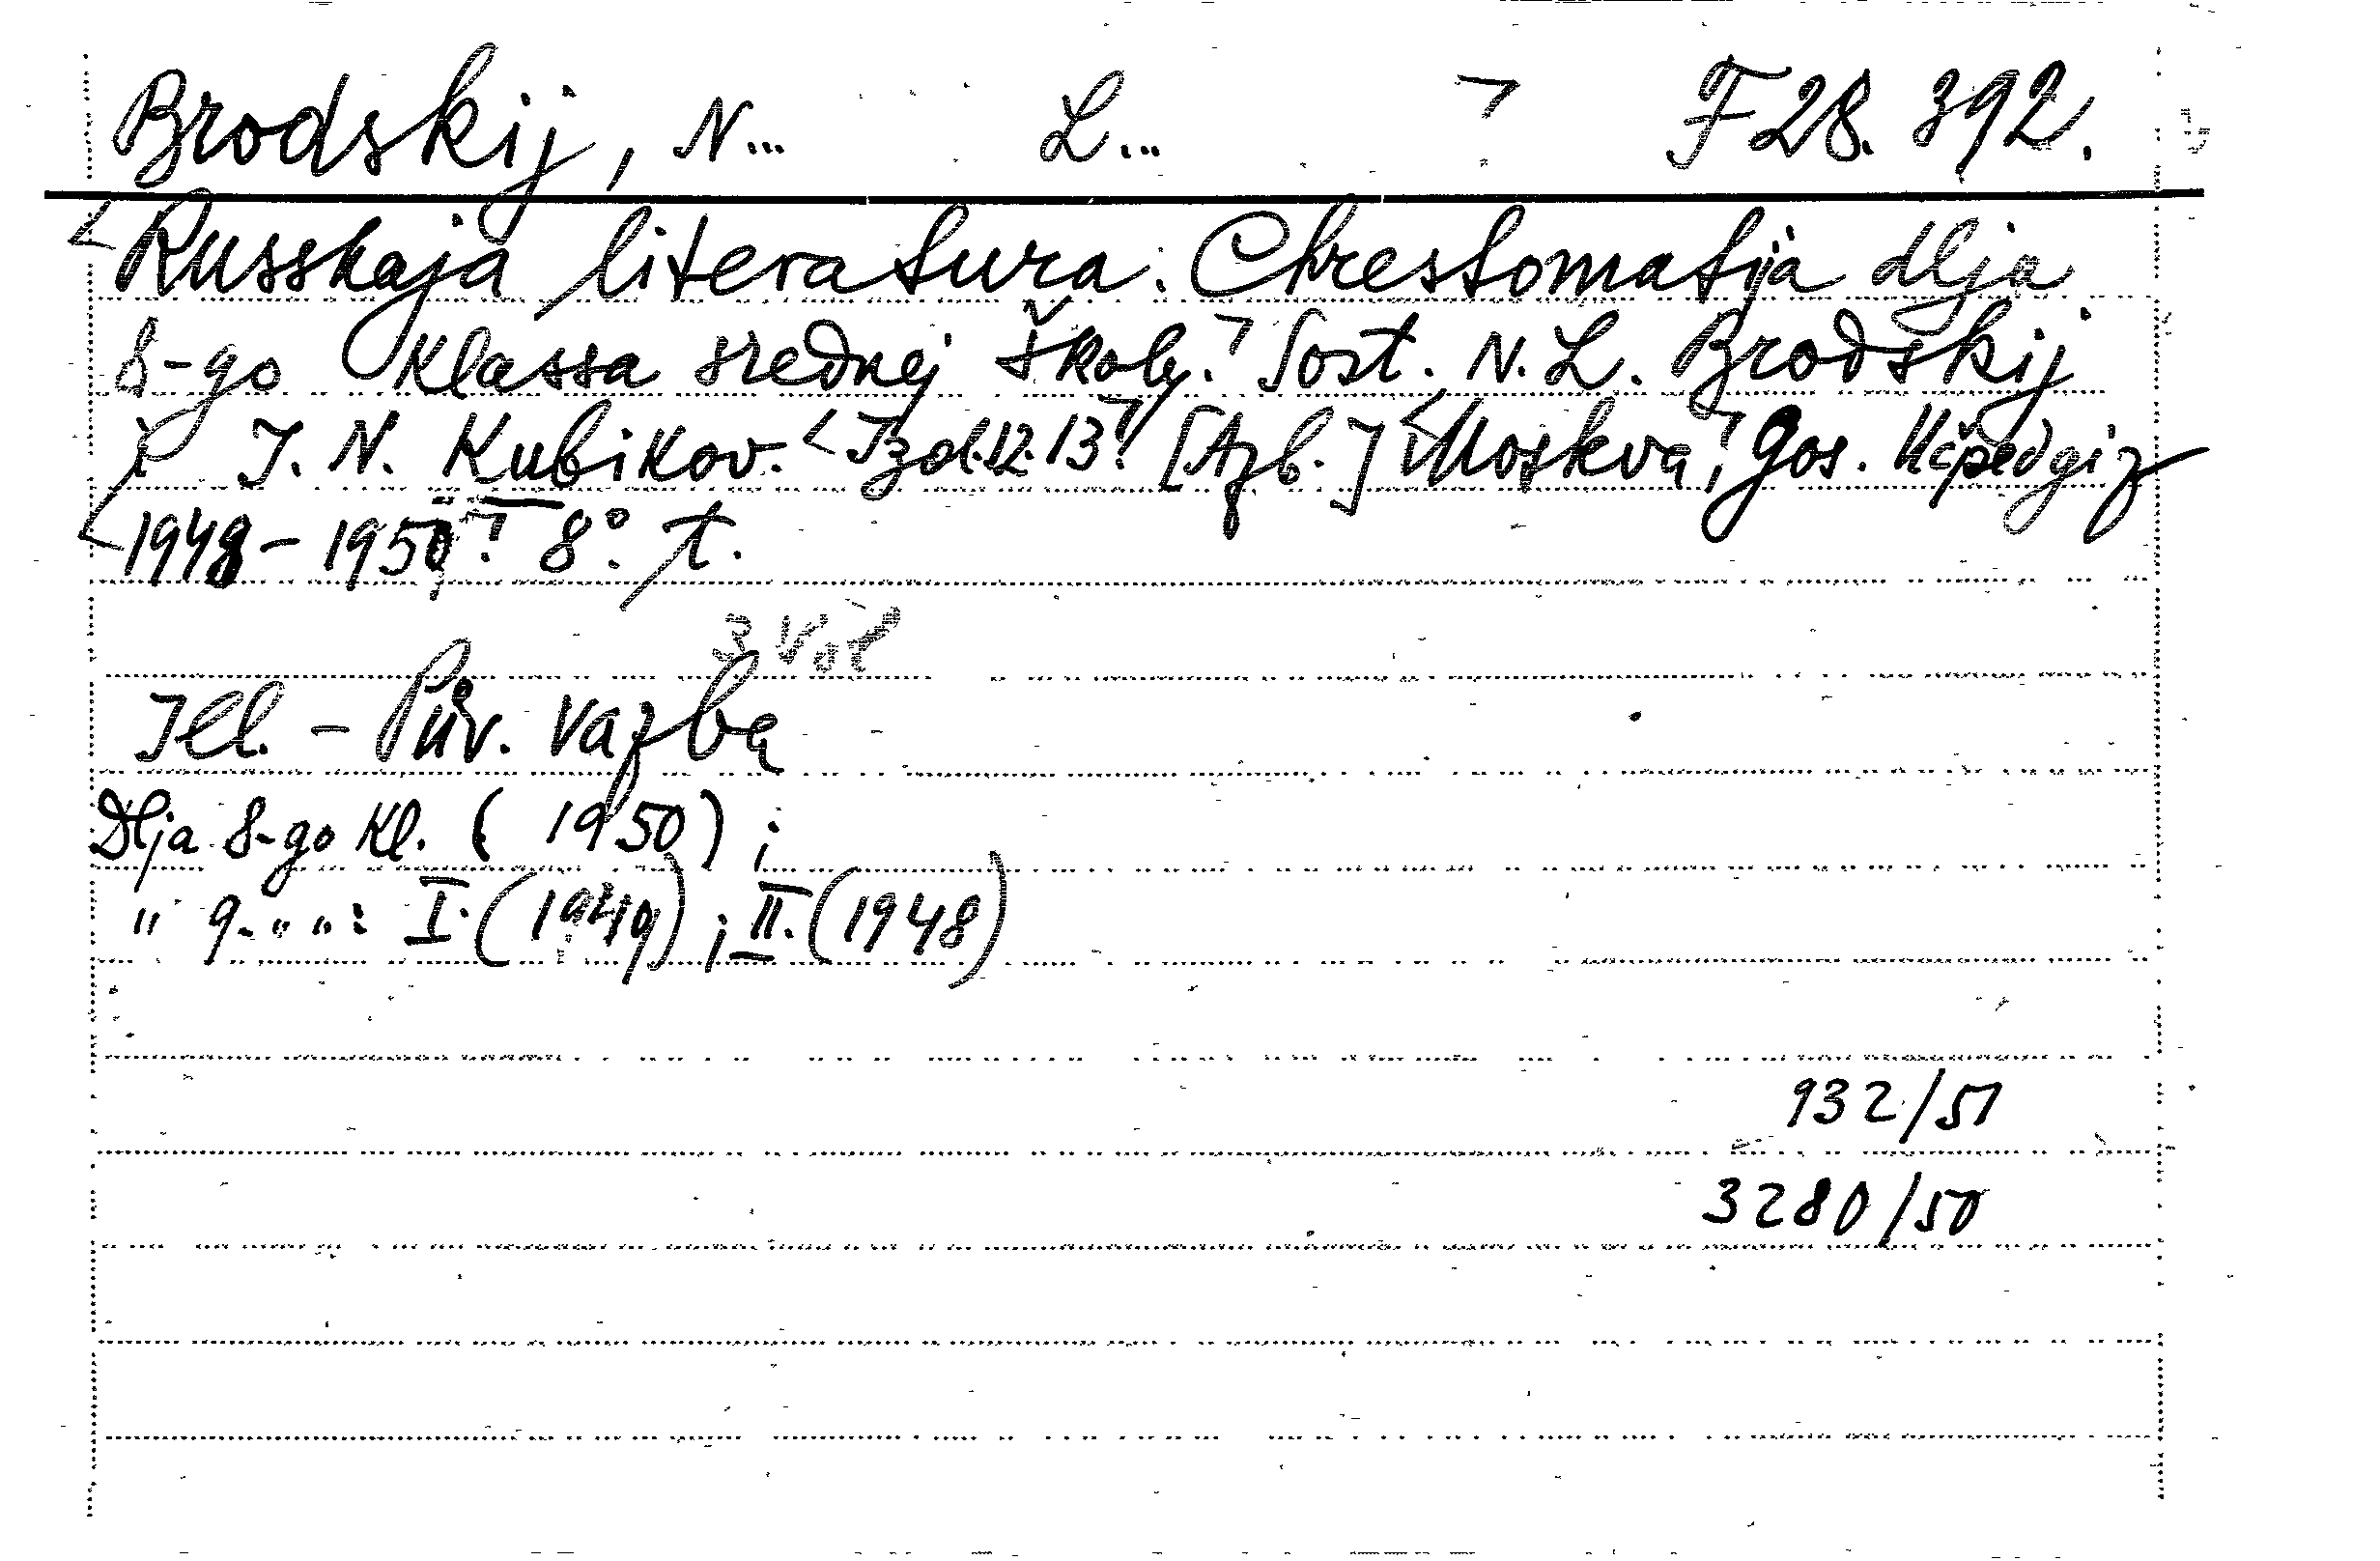 Brodskij, N... L... ┐ F 28. 392.
<Russkaja literatura. Chrestomatija dlja
8-go klassa srednej školy.┐ Sost. N. L. Brodskij
i I. N. Kubikov. <Izd. 12. 13.┐ [Azb.] <Moskva,┐ Gos. Učpedgiz
<1948 - 1950.┐ 8°. t.
3 vol
Ill. - Pův. vazba
Dlja 8-go kl. ( 1950) ;
" 9- " " : I. (1949) ; II. (1948)
932/51
3280/50